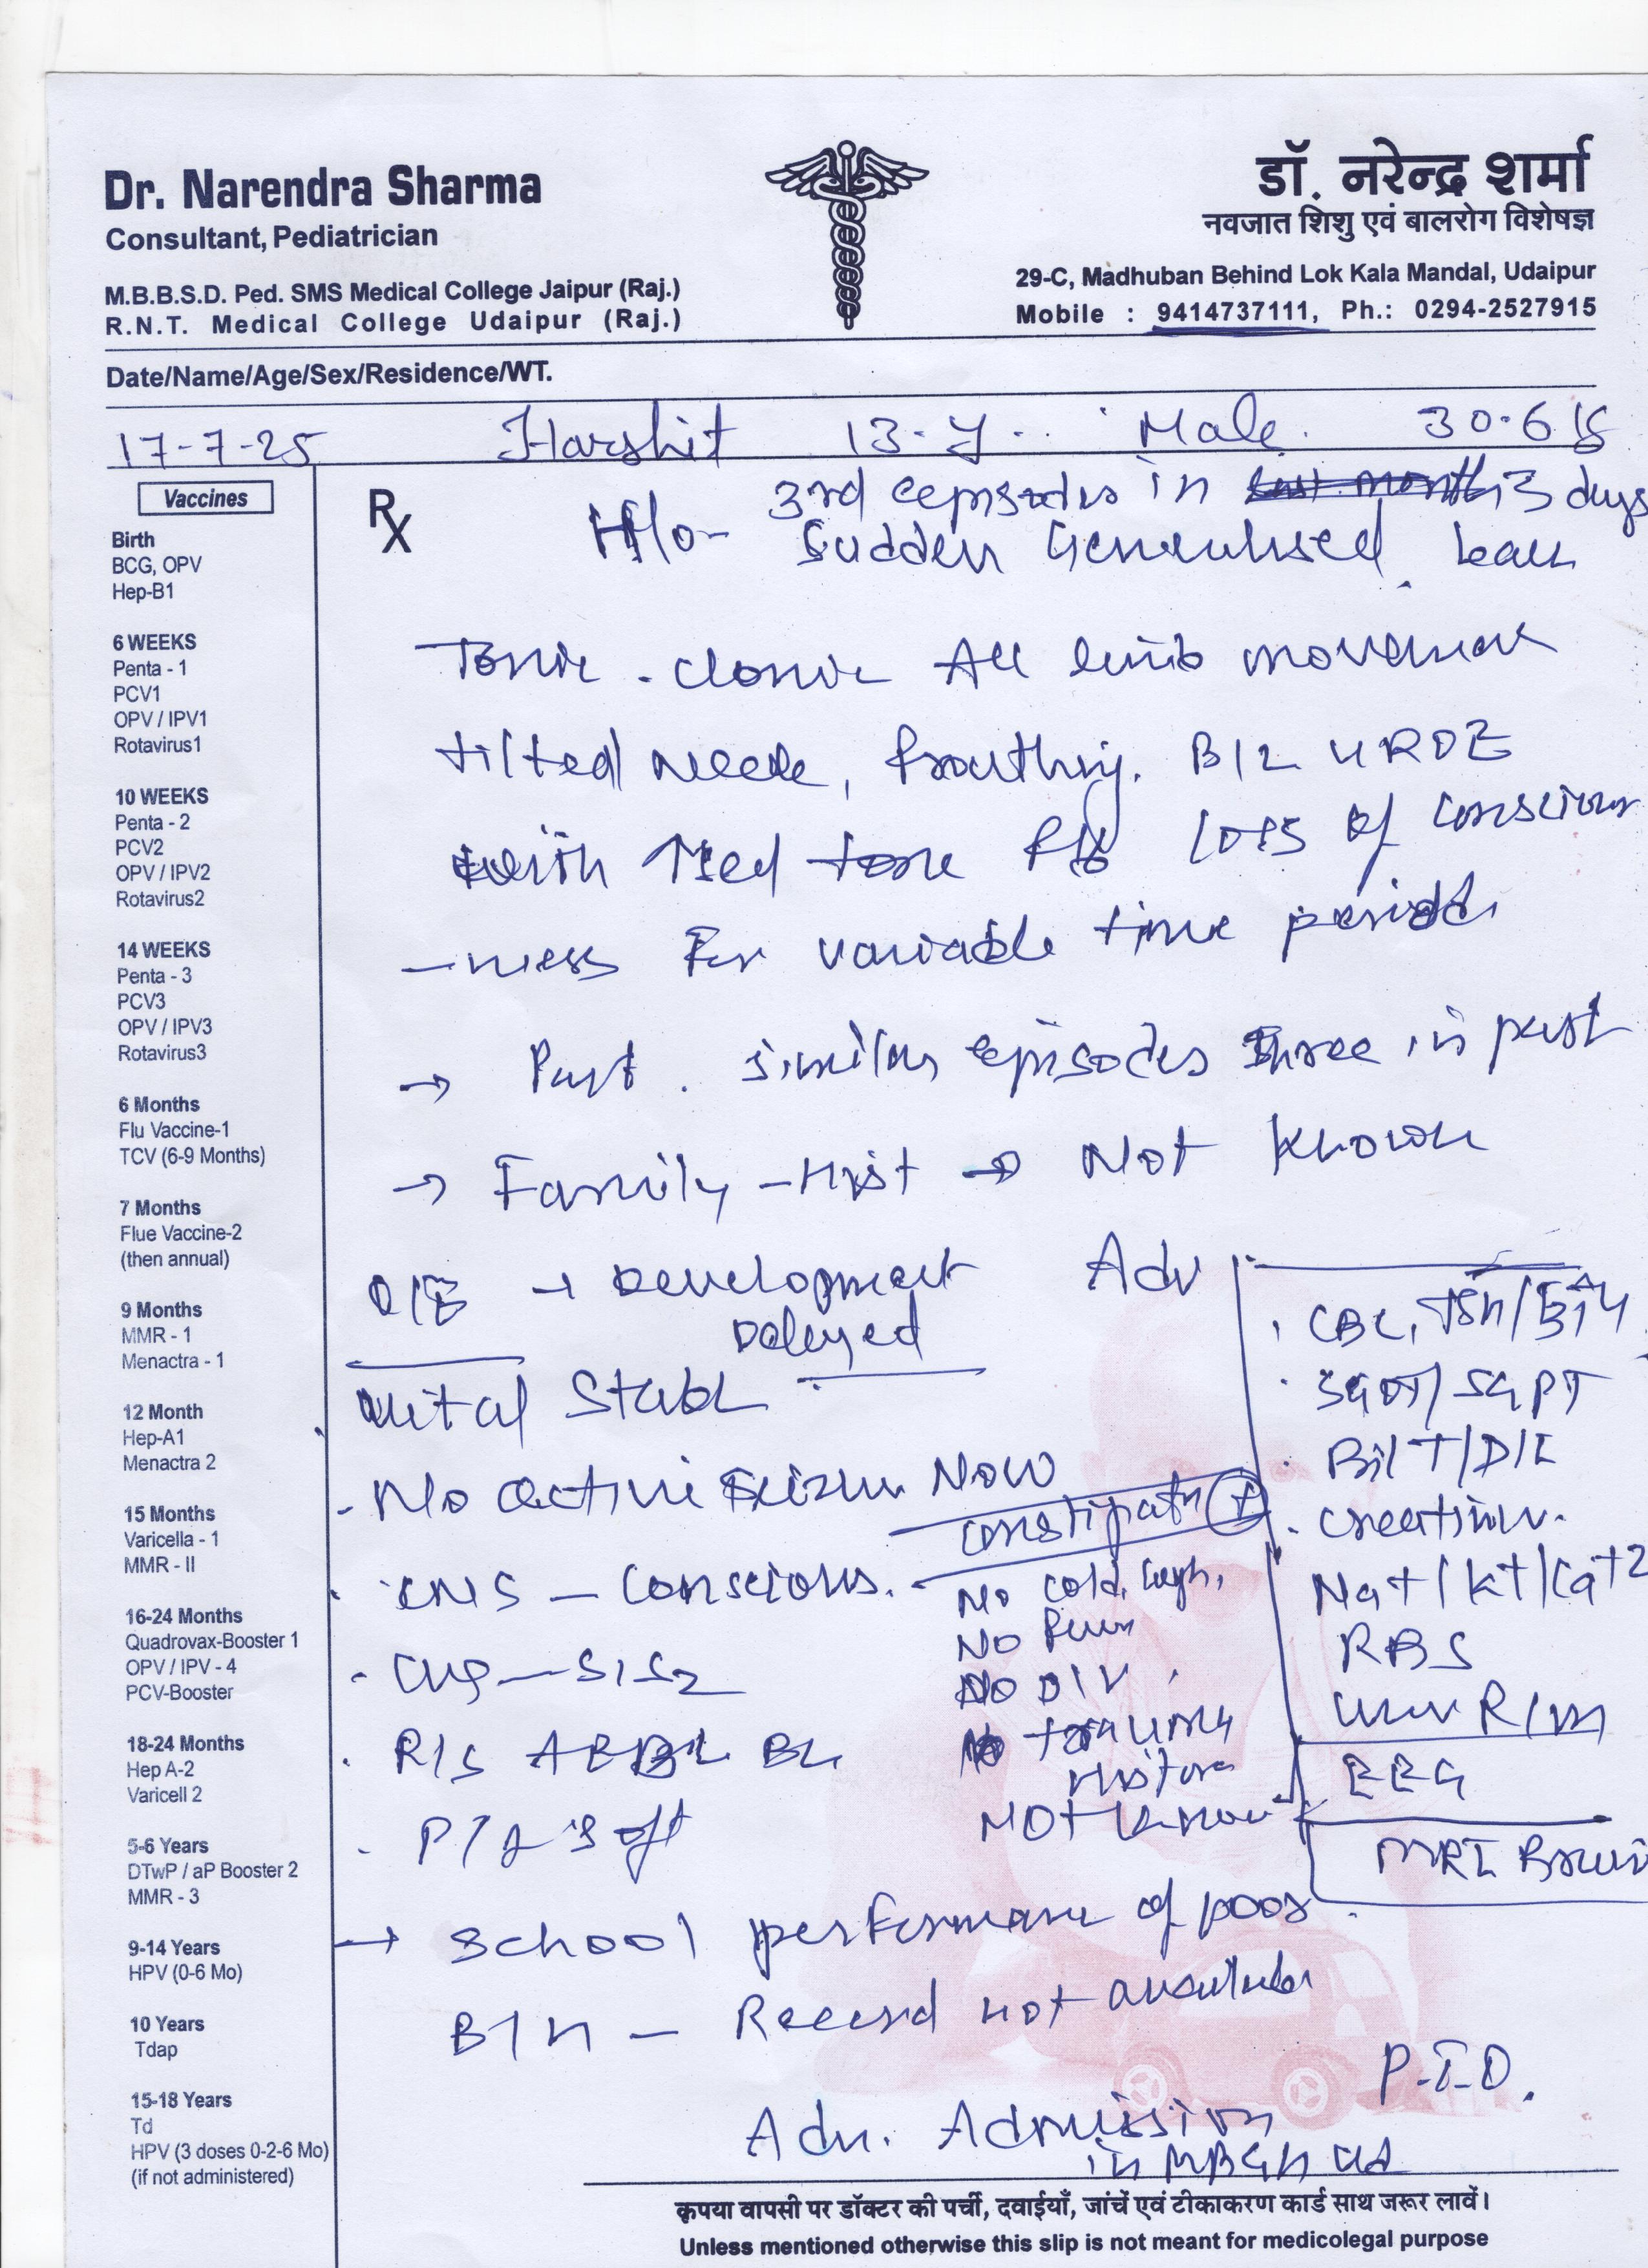 Dr. Narendra Sharma
Consultant, Pediatrician
M.B.B.S.D. Ped. SMS Medical College Jaipur (Raj.)
R.N.T. Medical College Udaipur (Raj.)
डॉ. नरेन्द्र शर्मा
नवजात शिशु एवं बालरोग विशेषज्ञ
29-C, Madhuban Behind Lok Kala Mandal, Udaipur
Mobile : 9414737111, Ph.: 0294-2527915
Date/Name/Age/Sex/Residence/WT.
17-7-25 Harshit 13-y Male 30.6
Vaccines
Birth
BCG, OPV
Hep-B1
6 WEEKS
Penta - 1
PCV1
OPV / IPV1
Rotavirus1
10 WEEKS
Penta - 2
PCV2
OPV / IPV2
Rotavirus2
14 WEEKS
Penta - 3
PCV3
OPV / IPV3
Rotavirus3
6 Months
Flu Vaccine-1
TCV (6-9 Months)
7 Months
Flue Vaccine-2
(then annual)
9 Months
MMR - 1
Menactra - 1
12 Month
Hep-A1
Menactra 2
15 Months
Varicella - 1
MMR - II
16-24 Months
Quadrovax-Booster 1
OPV / IPV - 4
PCV-Booster
18-24 Months
Hep A-2
Varicell 2
5-6 Years
DTwP / aP Booster 2
MMR - 3
9-14 Years
HPV (0-6 Mo)
10 Years
Tdap
15-18 Years
Td
HPV (3 doses 0-2-6 Mo)
(if not administered)
Rx
3rd eepisodes in 3 days
H/o- Sudden Generalised
Tonic - clonic All limb movement
tilted neck, frothing. B/L UROE
with tone loss of conscious
-ness For variable time periods
→ Past . similar episodes three in past
→ Family -Hist → Not known
O/E → Development
Delayed
Vital Stable
- No active Seizure Now
constipatn +
. CNS - conscious.
No cold, cough,
No
- CVS - S1S2
No D/V
. R/S AEBE BL
trauma
History
Not known
. P/A soft
→ School performance of poor
B/H - Record not available
P.T.O.
Adv. Admission
in MBGH Ud
Adv
. CBC, TSH/
. SGOT/SGPT
. Bil T/D/I
. Creatinin.
Na+/K+/Ca+2
RBS
Urin R/M
EEG
MRI Brain
कृपया वापसी पर डॉक्टर की पर्ची, दवाईयाँ, जांचें एवं टीकाकरण कार्ड साथ जरूर लावें।
Unless mentioned otherwise this slip is not meant for medicolegal purpose